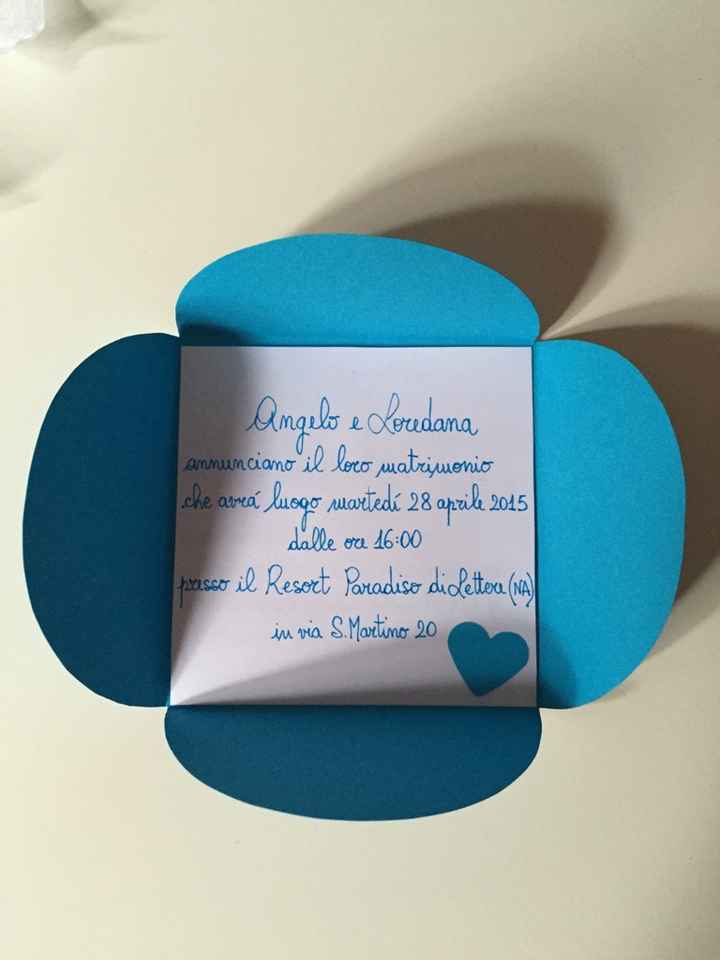 Angelo e Loredana
annunciano il loro matrimonio
che avrá luogo martedí 28 aprile 2015
dalle ore 16:00
presso il Resort Paradiso di Lettere (NA)
in via S. Martino 20